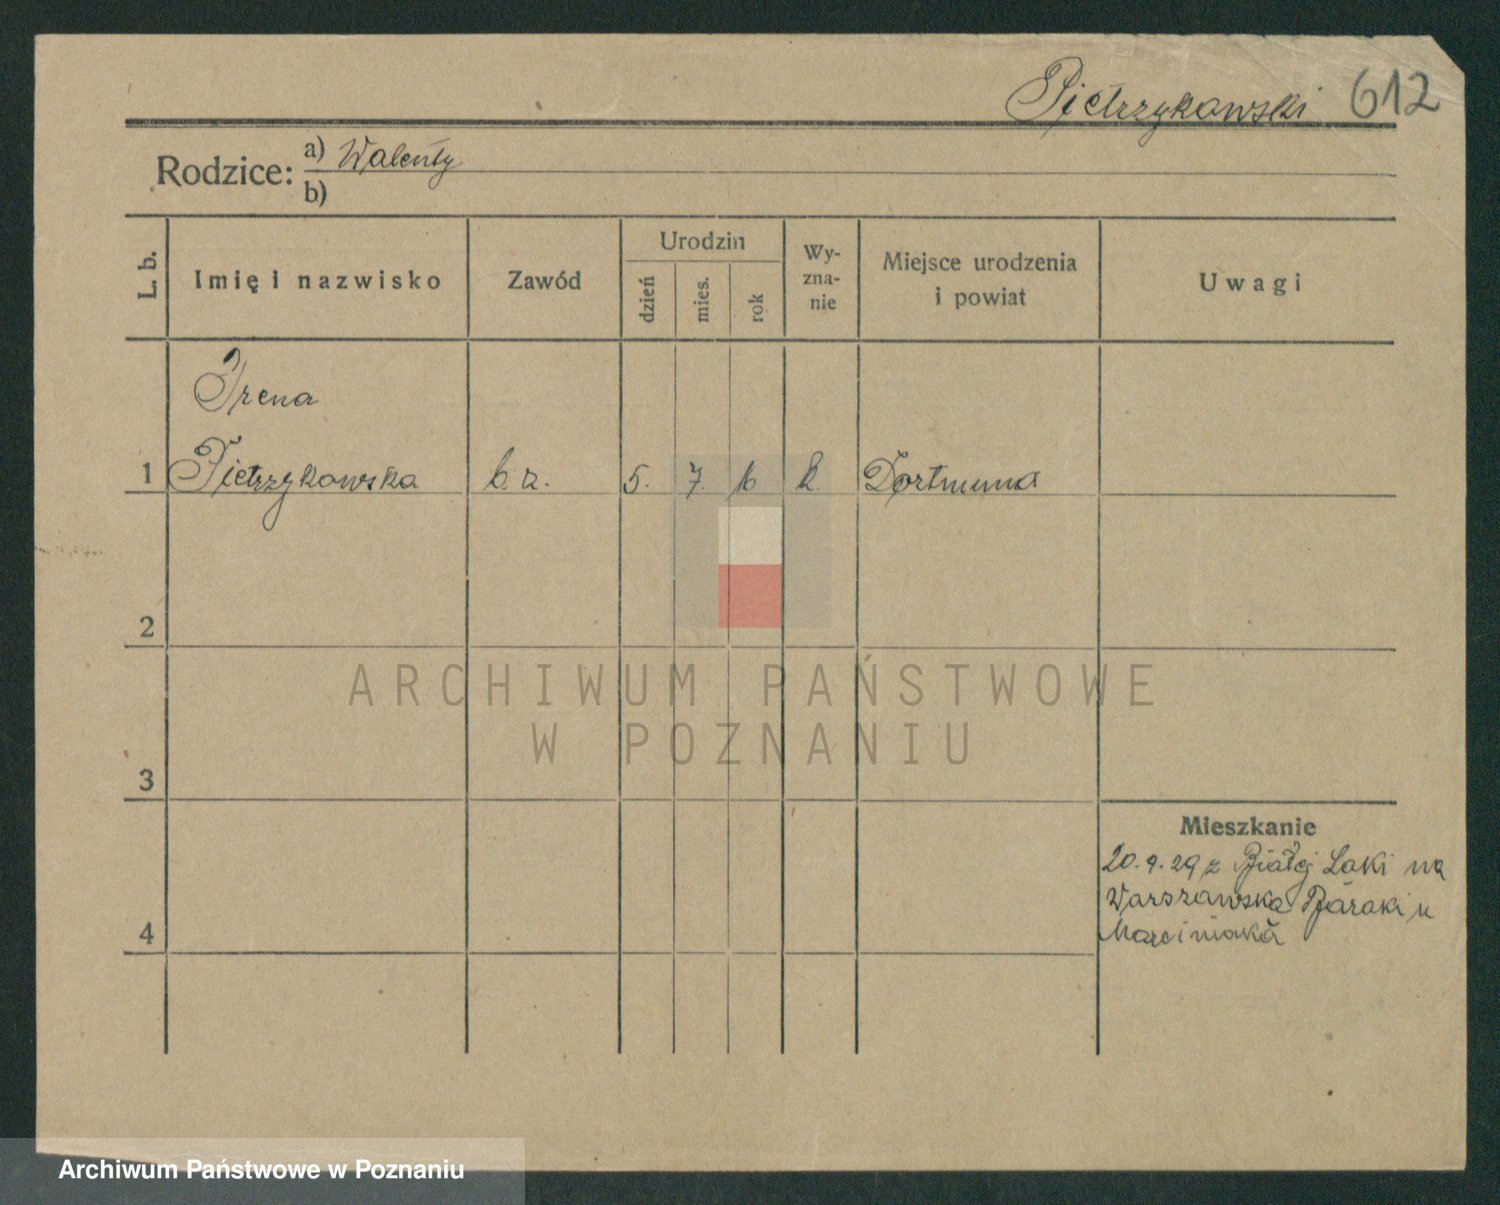 Pietrzykowski 612
Rodzice: a) Walenty
b)
L. b.
Imię i nazwisko
Zawód
Urodzin
dzień
mies.
rok
Wy-
zna-
nie
Miejsce urodzenia
i powiat
Uwagi
Irena
1 Pietrzykowska b. z. 5. 7. 16 k. Dortmund
2
3
4
Mieszkanie
20.9.29 z Białej Łaki na
Warszawska Baraki u
Marciniaka
ARCHIWUM PAŃSTWOWE
W POZNANIU
Archiwum Państwowe w Poznaniu